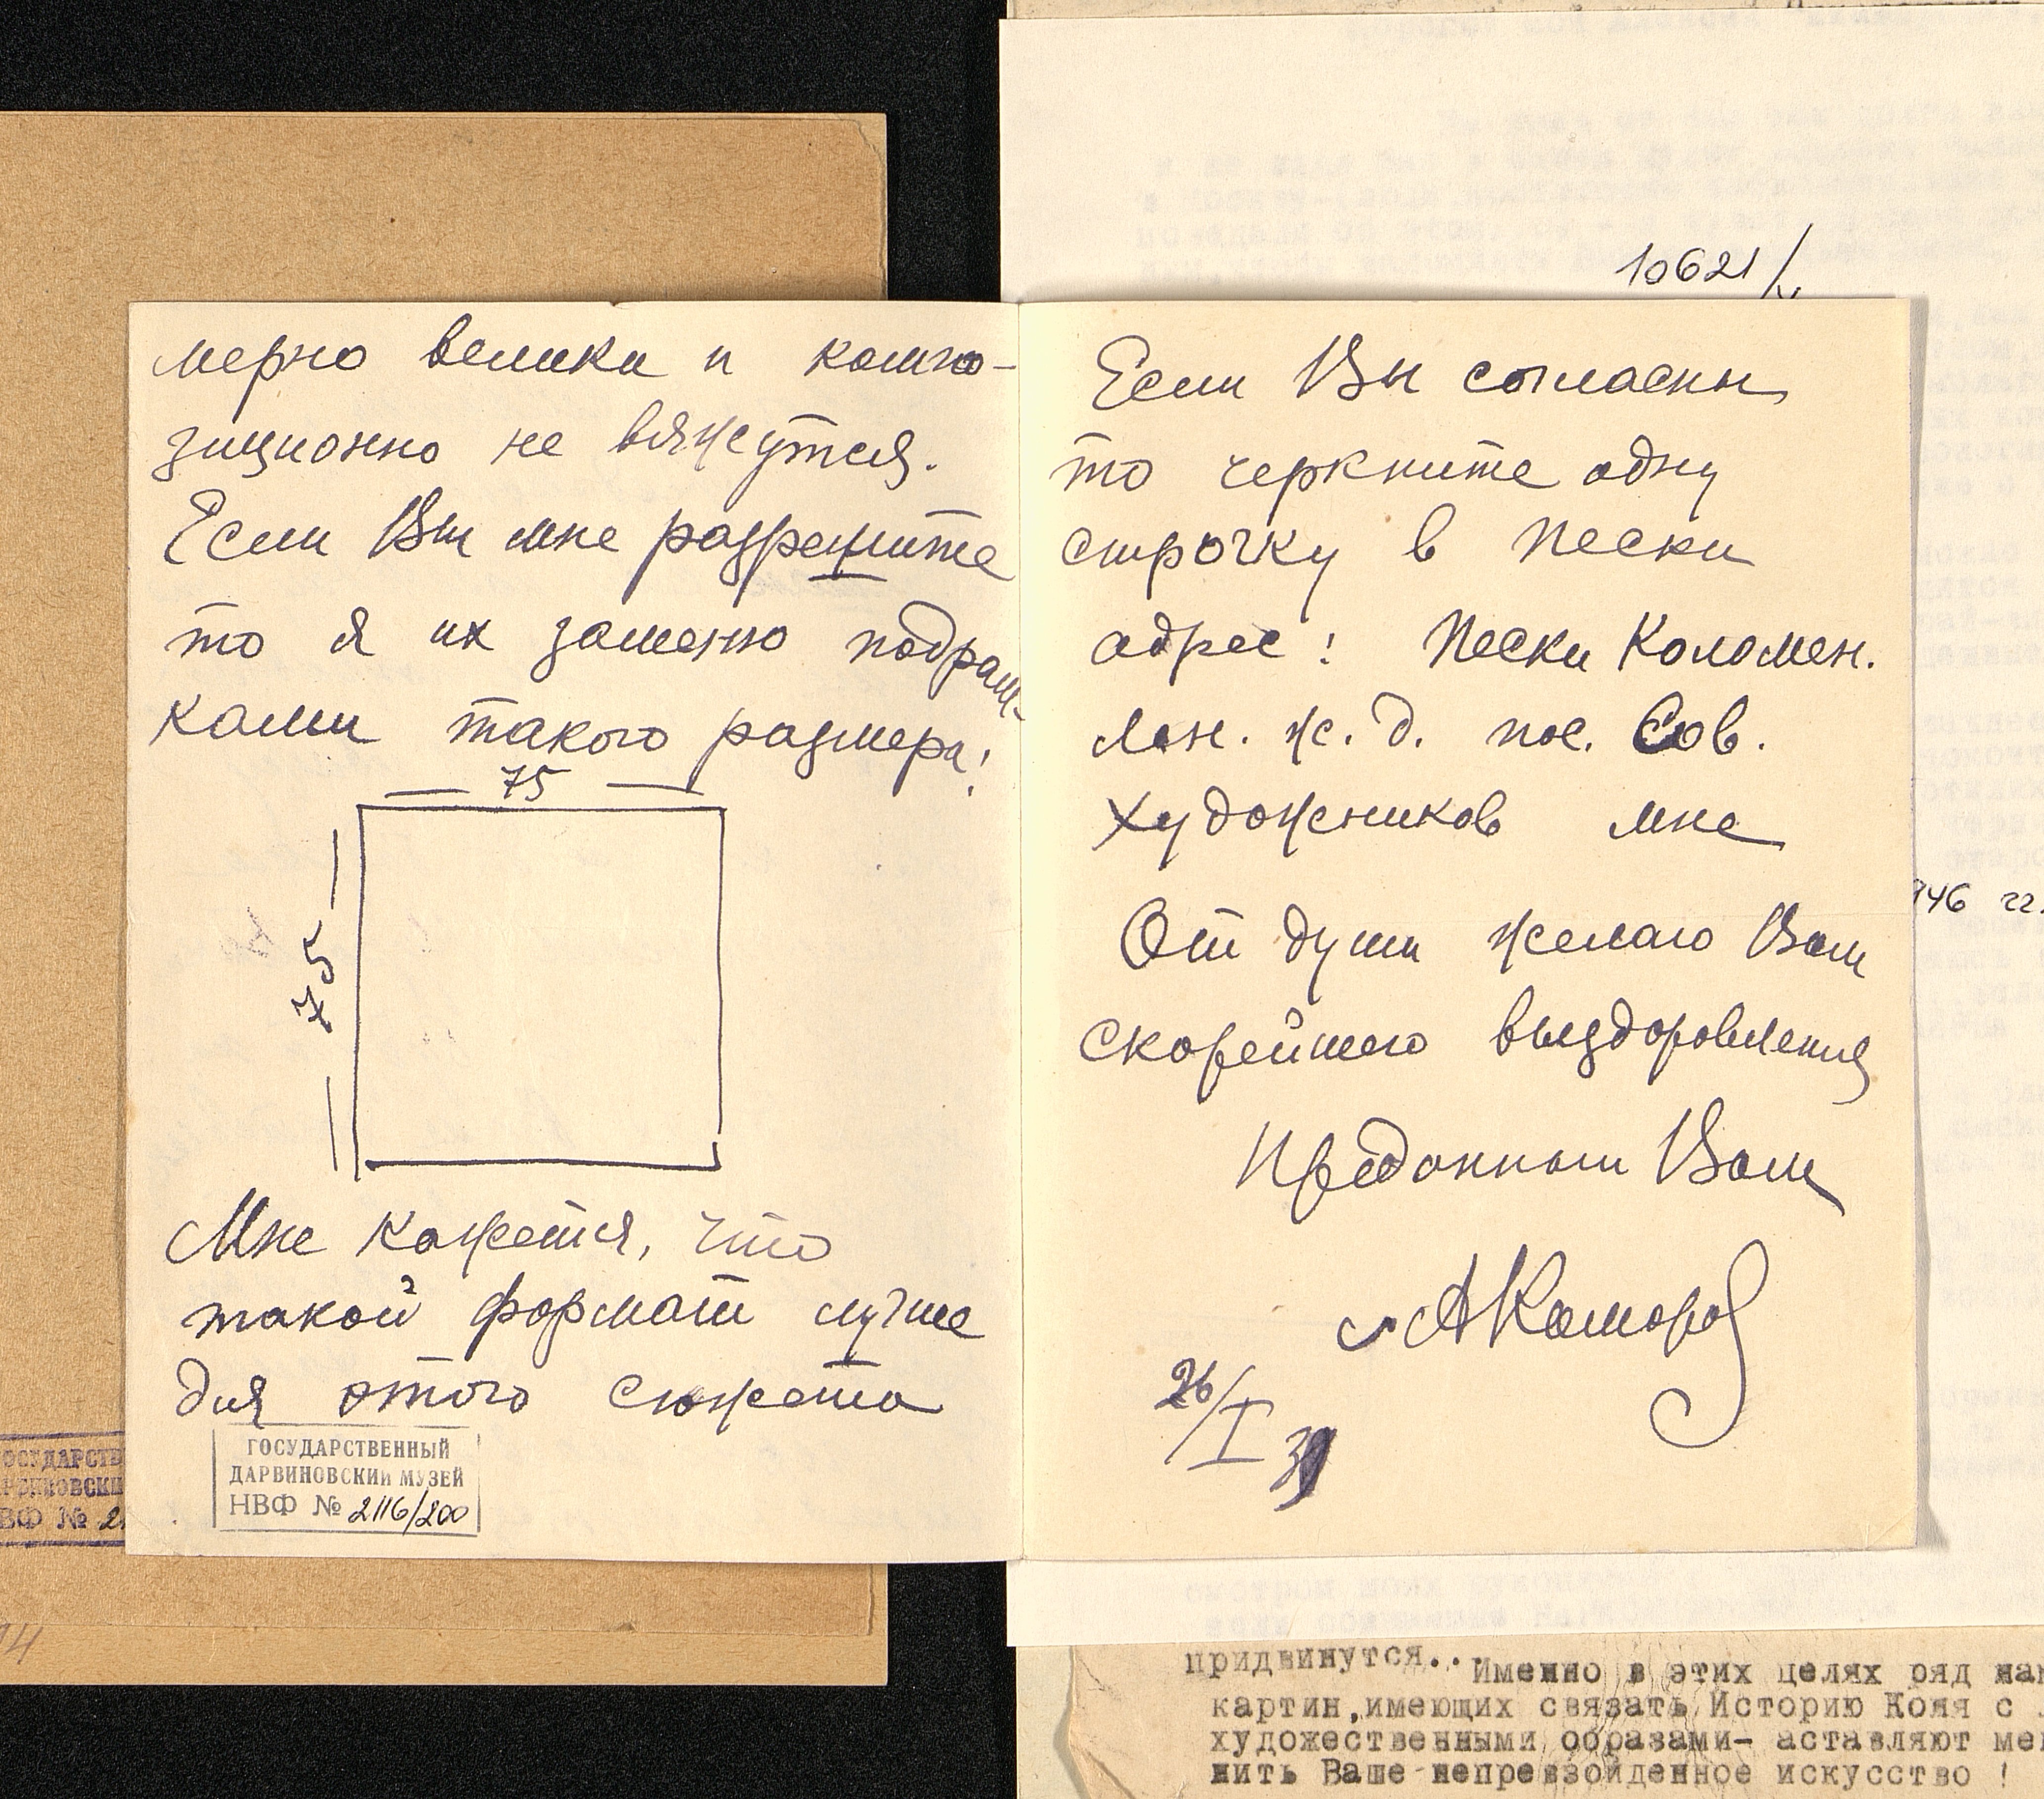 мерно велики и компо-
зиционно не вяжутся.
Если Вы мне разрешите
то я их заменю подрам-
ками такого размера:
75
75
Мне кажется, что
такой формат лучше
для этого сюжета
ГОСУДАРСТВЕННЫЙ
ДАРВИНОВСКИЙ МУЗЕЙ
НВФ № 2116/200
10621/
Если Вы согласны
то черкните одну
строчку в Пески
адрес: Пески Коломен.
Лен. ж. д. пос. Сов.
Художников мне
От души желаю Вам
скорейшего выздоровления
Преданный Вам
А Комаров
26/I 39
946 гг.
придвинутся..
Именно в этих целях ряд
картин,имеющих связать Историю Кояя с
художественными образами- аставляют
нить Ваше непревзойденное искусство !